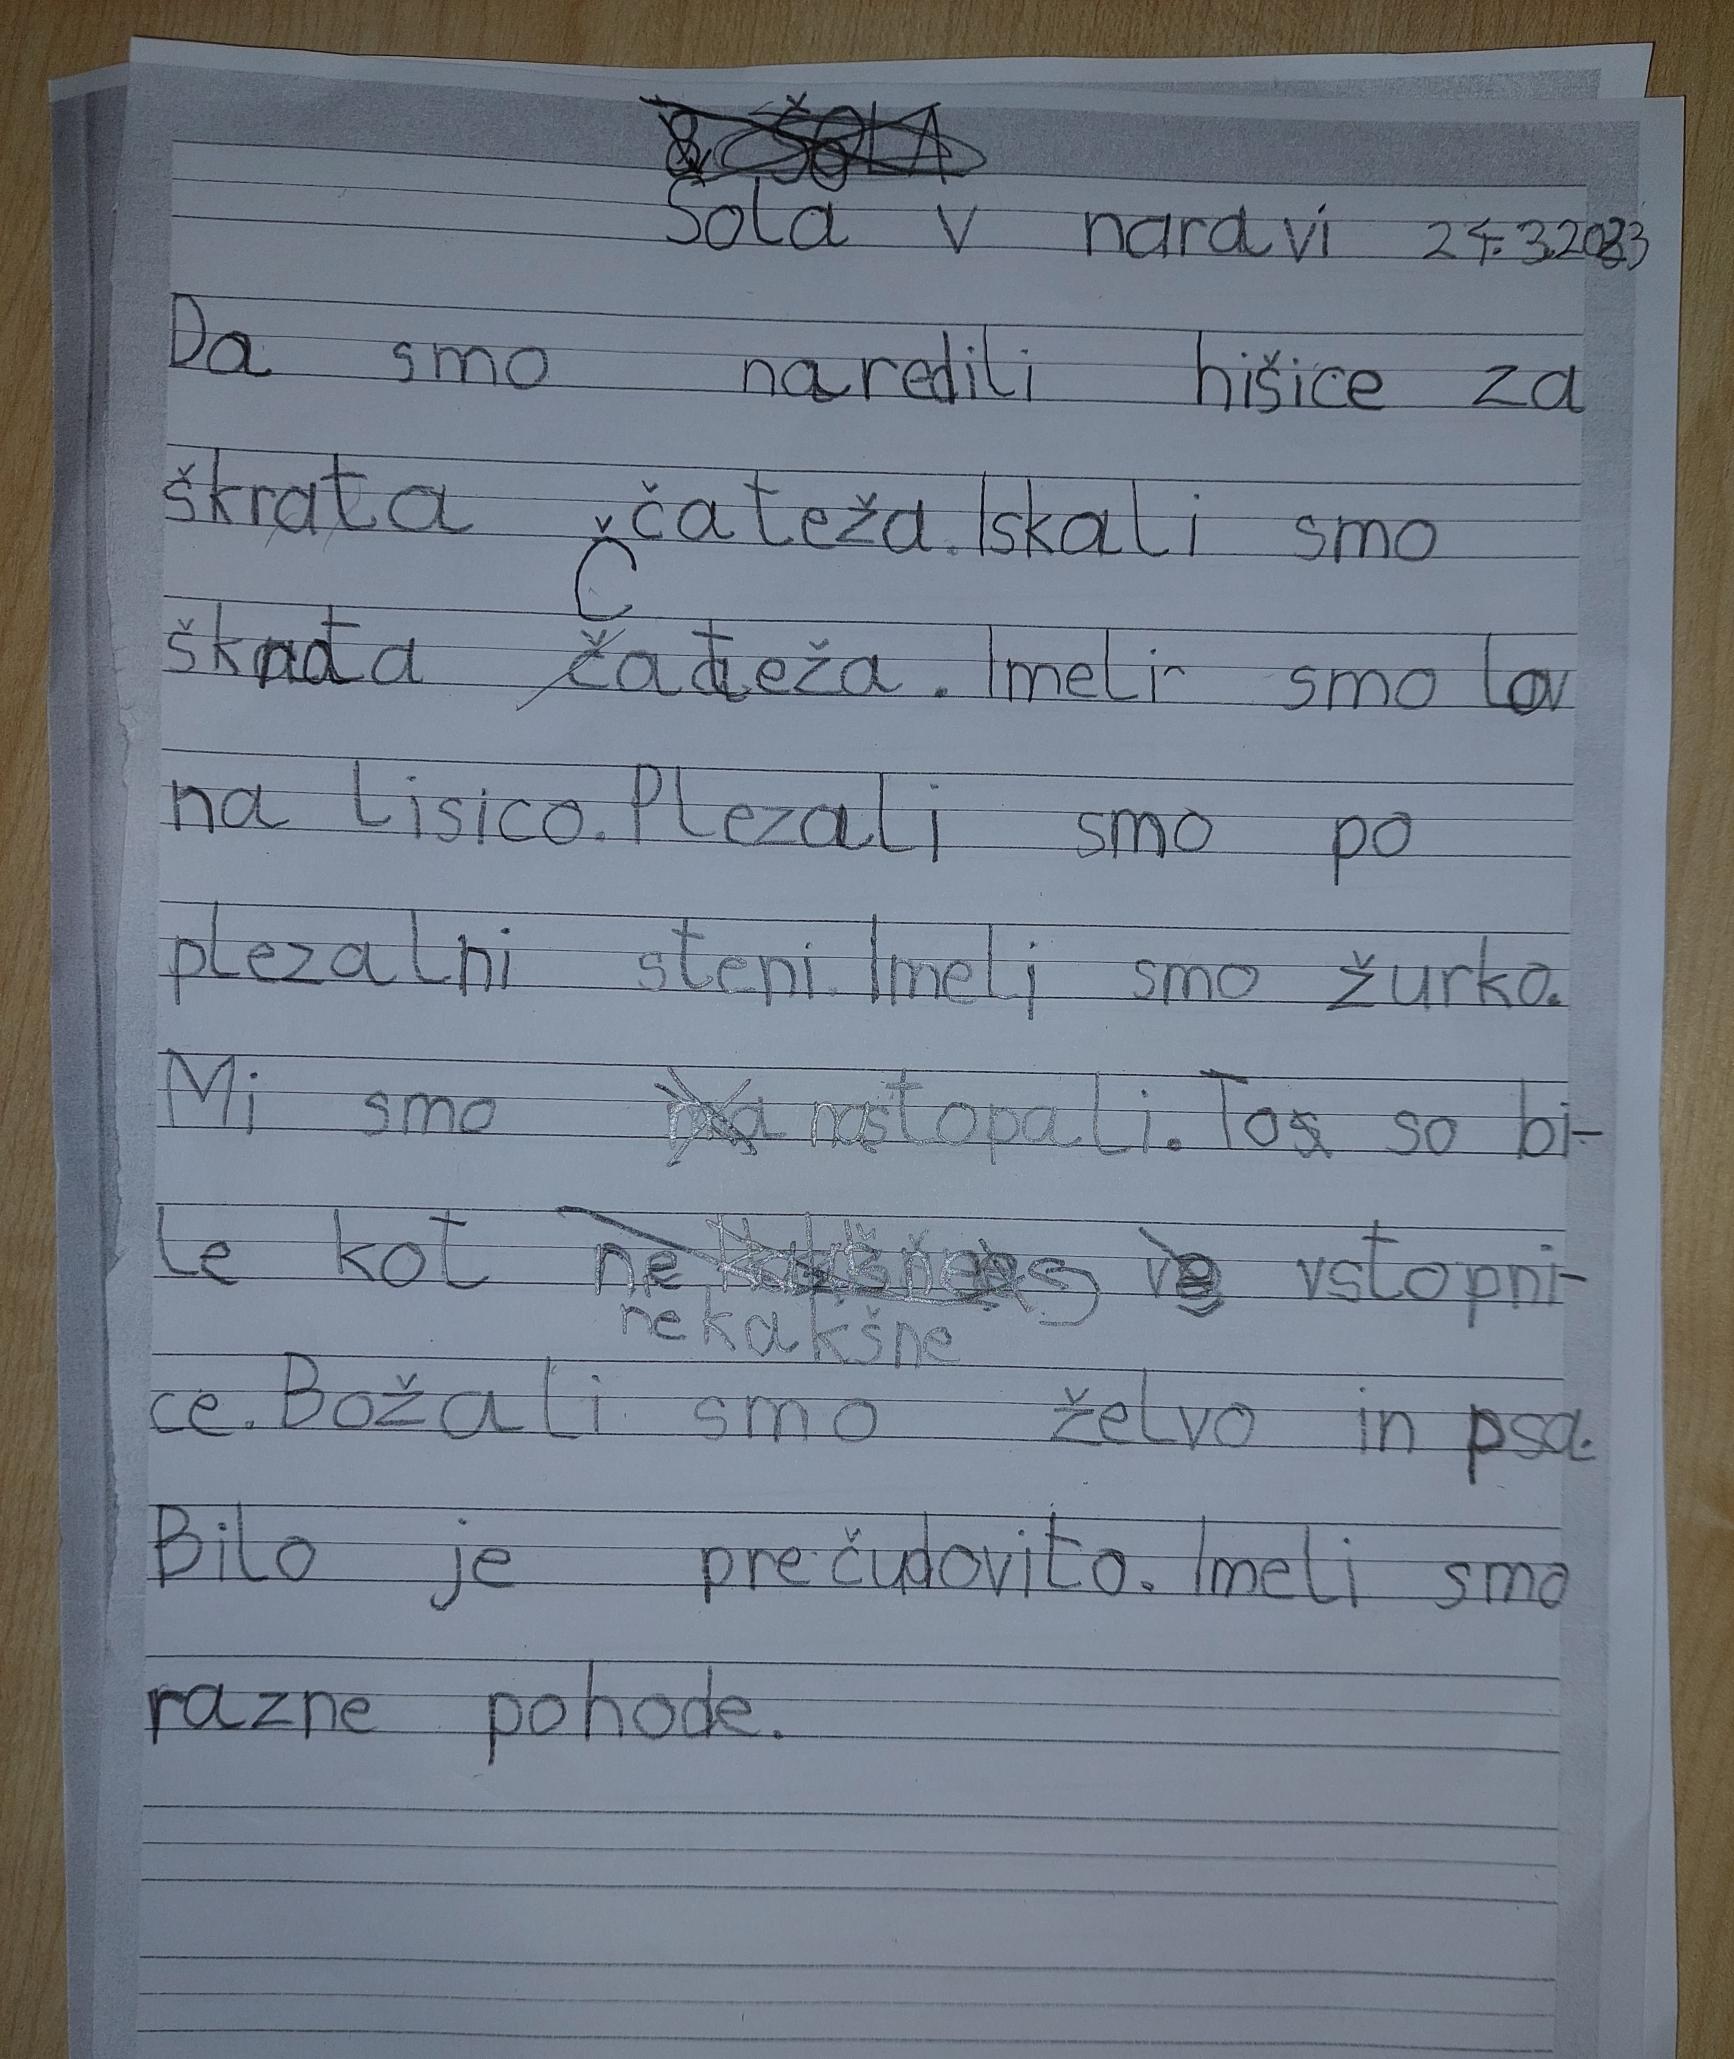 Šola v naravi 24.3.2023
Da smo naredili hišice za
škrata čateža. Iskali smo
škrata Čateža. Imeli smo lov
na lisico. Plezali smo po
plezalni steni. Imeli smo žurko.
Mi smo nastopali. To so bi-
le kot nekakšne vstopni-
ce. Božali smo želvo in psa.
Bilo je prečudovito. Imeli smo
razne pohode.